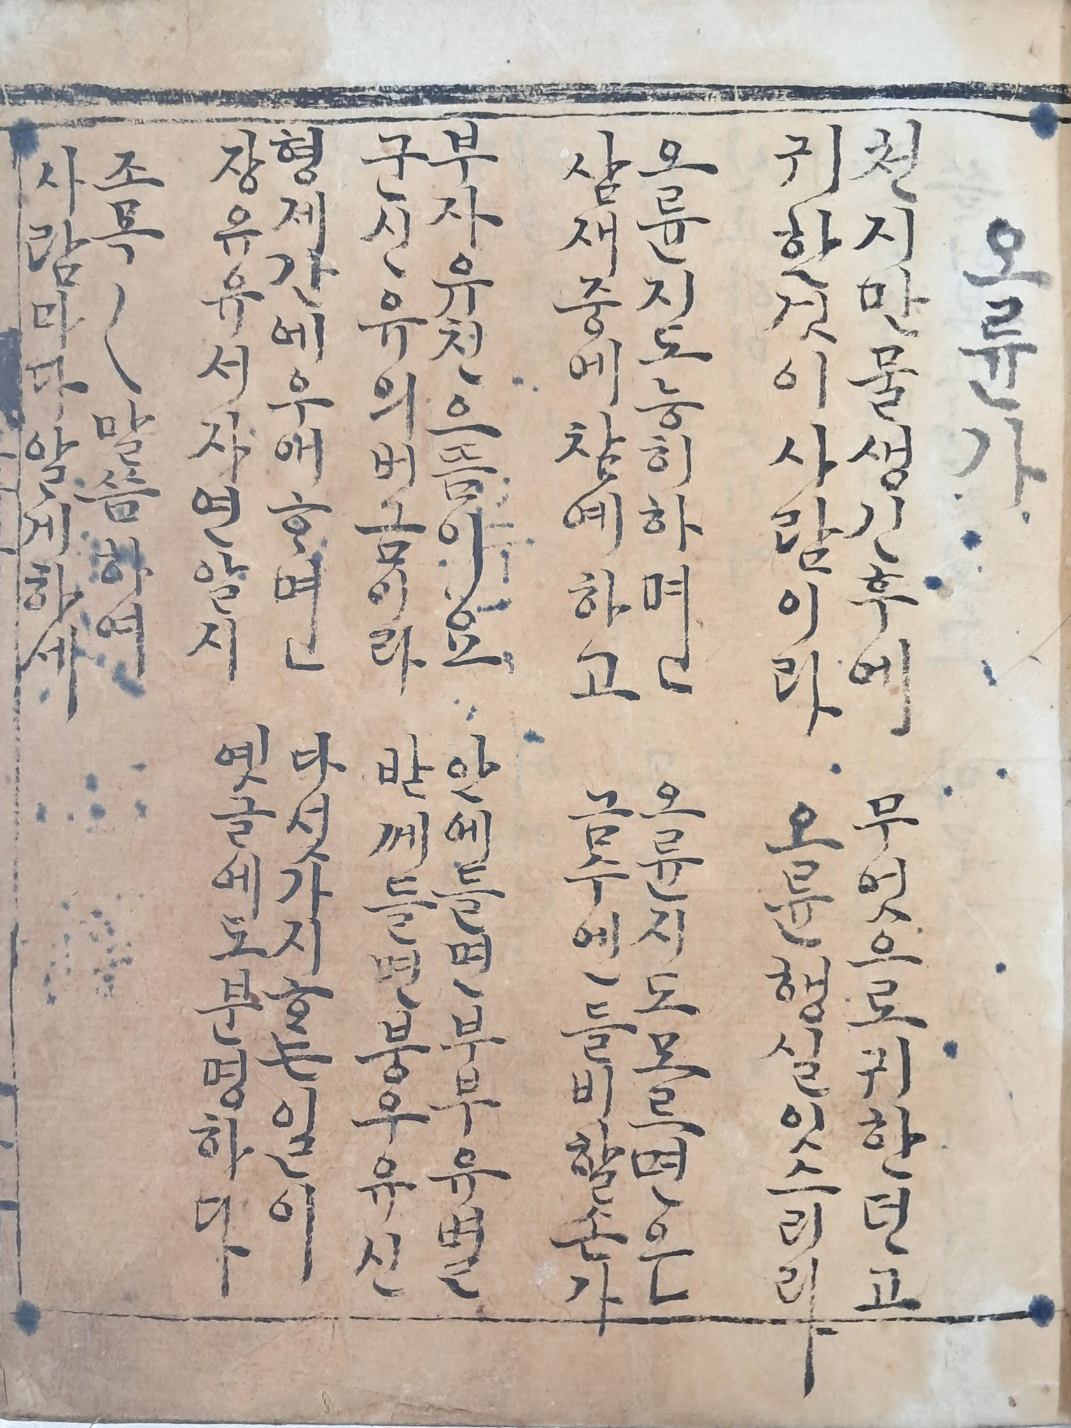 오륜가
천지만물생긴후에 무엇으로귀한던고
귀한것이사람이라 오륜행실잇스리라
오륜지도능히하면 오륜지도모르면은
삼재중에참예하고 금수엔들비할손가
부자유친으틈이요 안에들면부부유별
군신유의버금이라 밧께들면붕우유신
형제간에우애호면 다섯가지호는일이
장유유서자연알지 옛글에도분명하다
조목〱말씀하여
사람마다알게하세